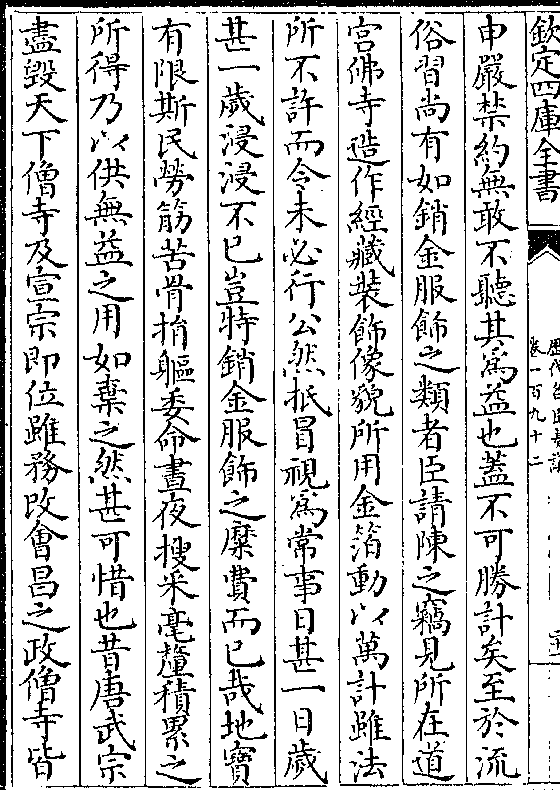 欽定四庫全書
歷代名臣奏議
卷一百九十二
申嚴禁約無敢不聽其爲益也蓋不可勝計矣至於流
俗習尚有如銷金服飾之類者臣請陳之竊見所在道
宫佛寺造作經藏裝飾像貌所用金箔動以萬計雖法
所不許而令未必行公然抵冒視爲常事日甚一日歲
甚一歲浸浸不已豈特銷金服飾之糜費而已哉地寶
有限斯民勞筋苦骨捐軀委命晝夜搜采毫釐積累之
所得乃以供無益之用如棄之然甚可惜也昔唐武宗
盡毀天下僧寺及宣宗即位雖務改會昌之政僧寺皆